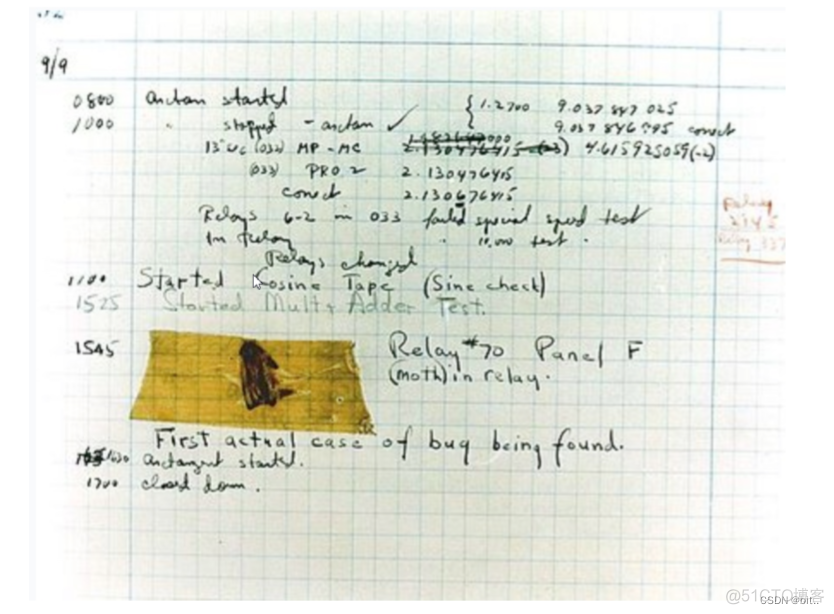 9/9
0800 antan started { 1.2700 9.037 847 025
1000 " stopped - antan ✓ 9.037 846 795 conect
13"uc (032) MP - MC 2.130476415 (-3) 4.615925059(-2)
(033) PRO 2 2.130476415
conect 2.130676415
Relays 6-2 in 033 failed special speed test
In Relay " 10,000 test .
Relays changed
1100 Started Cosine Tape (Sine check)
1525 Started Mult+ Adder Test.
1545 Relay #70 Panel F
(moth) in relay.
First actual case of bug being found.
1630 antangent started.
1700 closed down.
Relay
2145
Relay 337
@51CTO博客
CSDN @bit